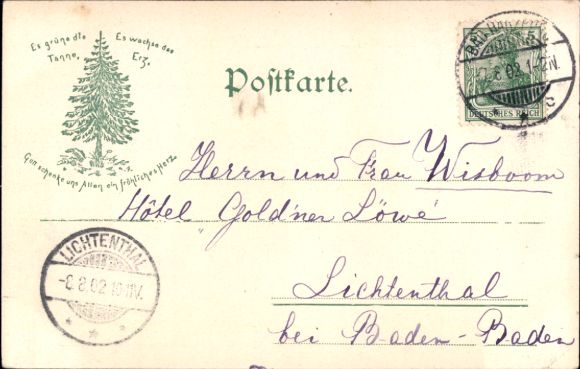 Es grüne die Es wachse das
Tanne, Erz,
Gott schenke uns Allen ein fröhliches Herz
Postkarte.
5
DEUTSCHES REICH
BAD HARZBURG
8 02 1-2N.
c
Herrn und Frau Wisboom
Hôtel "Gold'ner Löwe"
LICHTENTHAL
8 02
Lichtenthal
bei Baden-Baden